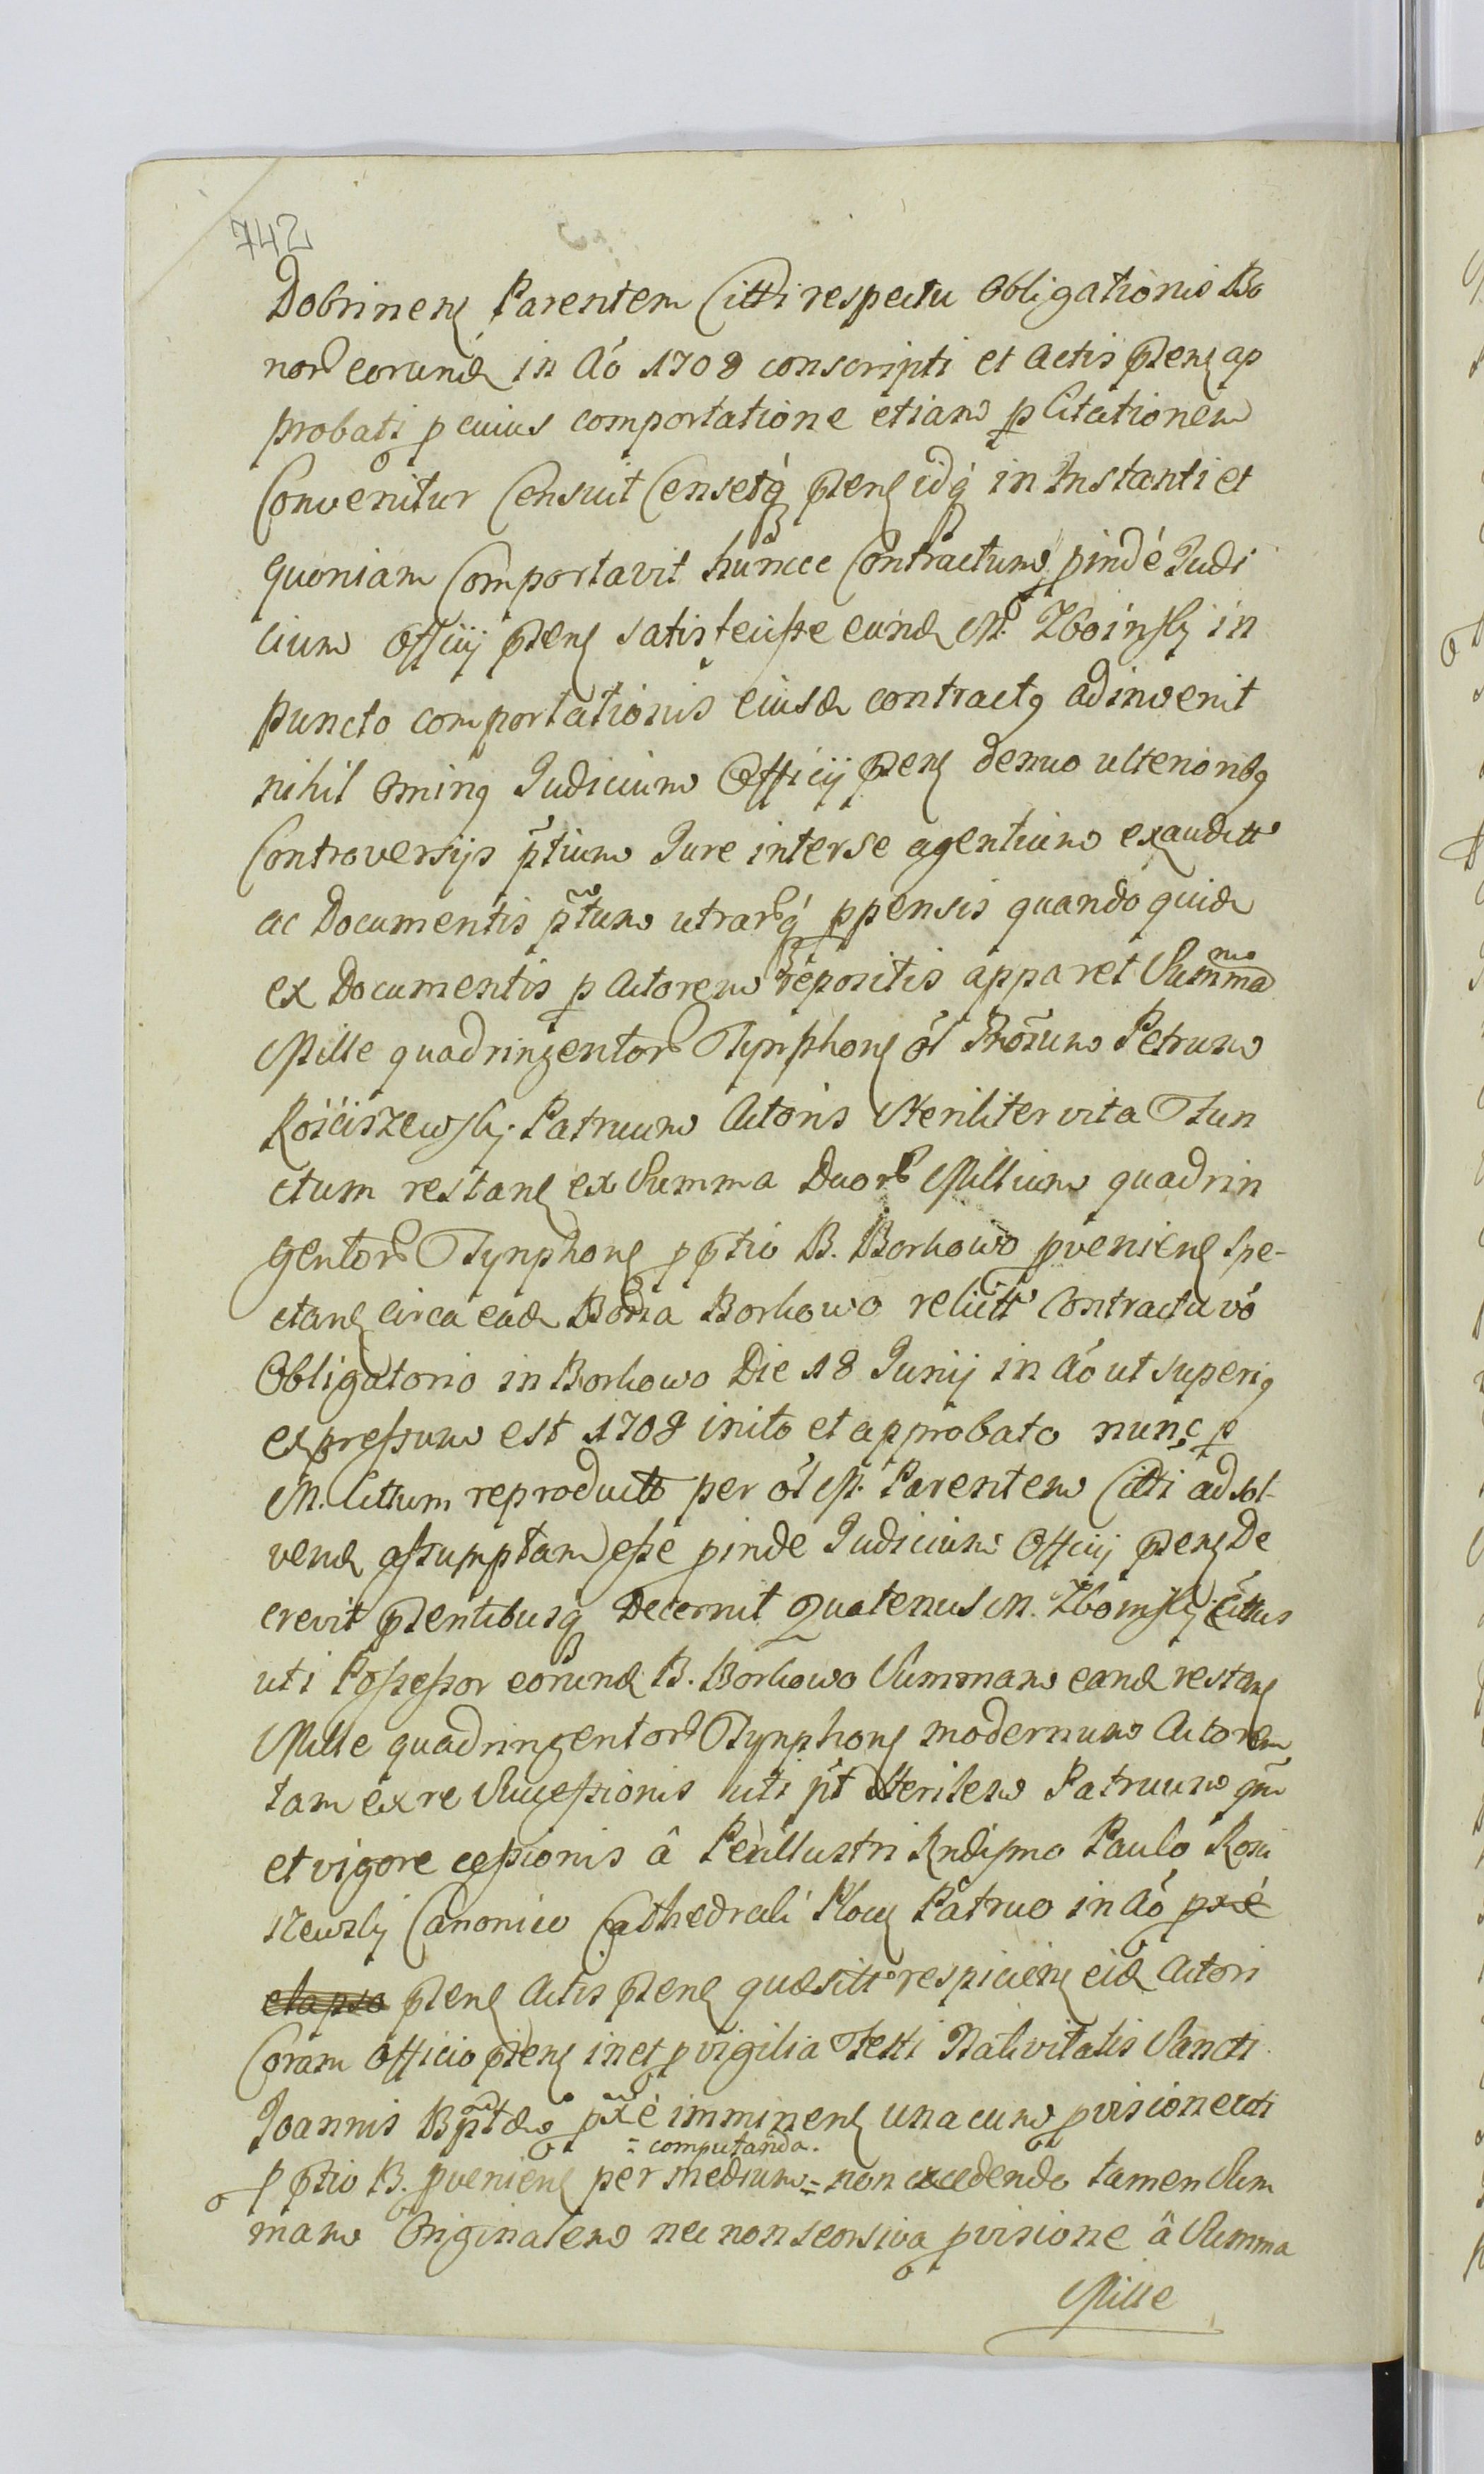 742
Dobrinens Parentem Citti respectu Obligationis Bo
nor eorund in Aō 1708 conscripti et Actis ptens ap
probati p cuius comportatione etiam p Citationem
Convenitur Censuit Censetq ptens idq in Instanti et
quoniam Comportavit huncce Contractum pindé Judi
cium Officij ptens satisfecisse eund M. Zboinsky in
puncto comportationis eiusd contractus adinvenit
nihil ominq Judicium Officij ptens denuo ulterioribq
Controversijs ptium Jure inter se agentium exauditt
ac Documentis ptium utrarq ppensis quando quid
ex Documentis p Actorem repositis apparet Summam
Mille quadringentor Tynphons ol Petrum
Rościszewsky Patruum Actoris steriliter vita Fun
ctum restans ex Summa Duor Millium quadrin
gentor Tynphons p ptio B. Borkowo pveniens Spe-
ctans circa ead Bona Borkowo relictt Contractu vō
Obligatorio in Borkowo Die 18 Junij in Aō ut superiq
expressum est 1708 inito et approbato nunc p
M. Cittum reproductt per ol M. Parentem Citti ad sol
vend assumptam esse pinde Judicium Officij ptens De
crevit ptentibusq Decernit Quatenus M. Zboinsky Cittus
uti Possessor eorund B. Borkowo Summam eand restans
Mille quadringentor Tynphons modernum Actorem
tam ex re Successionis uti pt sterilem Patruum qm
et vigore cessionis â Perillustri Rndissmo Paulo Rosci
szewsky Canonico Cathedrali Plocs Patruo in Aō pxé
elapso ptens Actis ptens quæsitt respiciens eid Actori
Coram Officio ptens in et p vigilia Festi Nativitatis Sancti
Joannis Bptæ pxé imminens una cum pvisione
= computanda.
p ptio B. pveniens per medium = non excedendo tamen Sum
mam Originalem nec non seorsiva pvisione â Summa
Mille